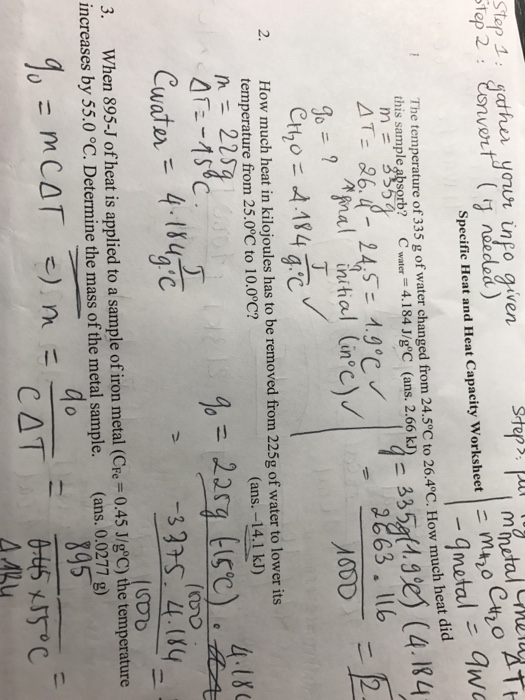 Step 1: gather your info given
Step 2: Convert (if needed)
Specific Heat and Heat Capacity Worksheet
= mH₂O CH₂O ΔT
- qmetal = qw
The temperature of 335 g of water changed from 24.5°C to 26.4°C. How much heat did
this sample absorb? C water = 4.184 J/g°C (ans. 2.66 kJ)
m = 335g
ΔT = 26.4 - 24.5 = 1.9°C ✓
final initial (in°C) ✓
q = ?
CH₂O = 4.184 J/g.°C ✓
q = 335g (1.9°C) (4.184
= 2663.116
1000
2. How much heat in kilojoules has to be removed from 225g of water to lower its
temperature from 25.0°C to 10.0°C? (ans. –14.1 kJ)
m = 225g
ΔT = -15°C
Cwater = 4.184 J/g.°C
q = 225g (-15°C) . 4.184
1000
= -3375 . 4.184 =
1000
3. When 895-J of heat is applied to a sample of iron metal (CFe = 0.45 J/g°C) the temperature
increases by 55.0 °C. Determine the mass of the metal sample. (ans. 0.0277 g)
q = mCΔT => m = q / CΔT = 895 / 0.45 x 55°C =
4.184